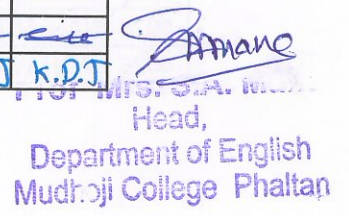 K.D.J
Prof Mrs. S.A.
Head,
Department of English
Mudhoji College Phaltan